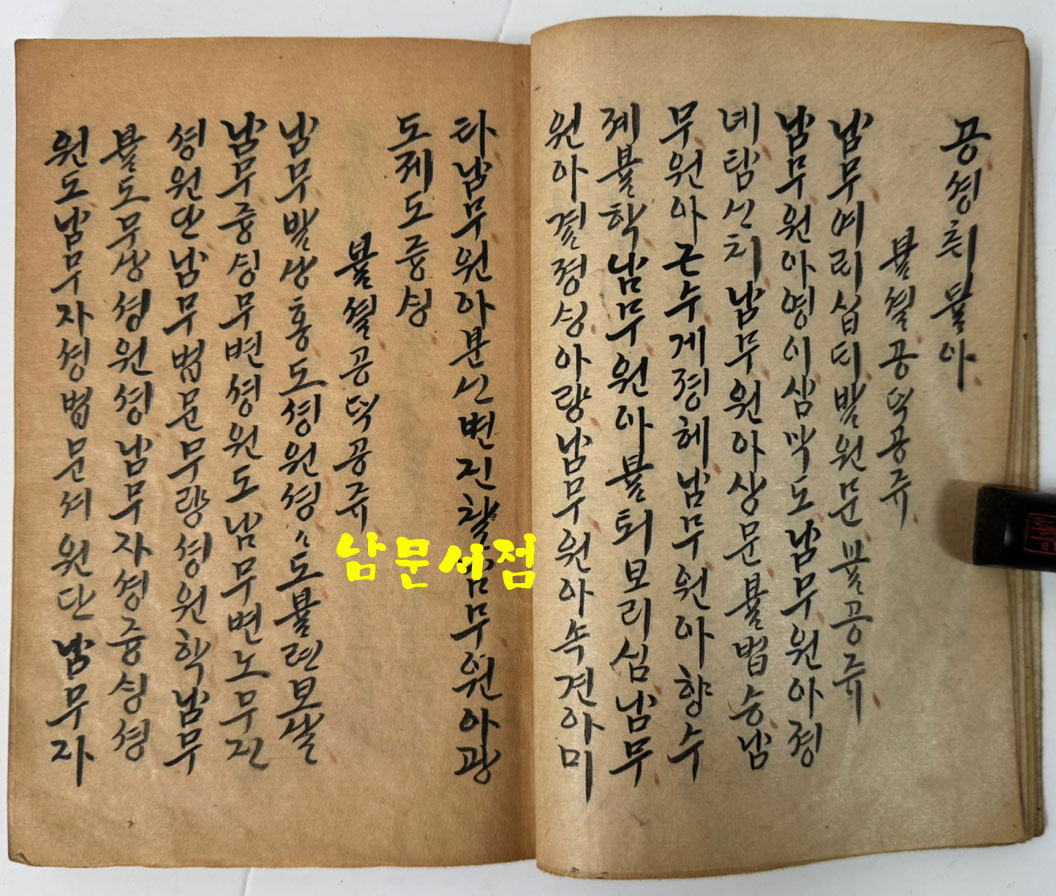 공셩취뷸아
뷸셜공덕공쥬
남무여리십티발원문뷸공쥬
남무원아영이삼막도남무원아졍
녜탐신치남무원아상문뷸법승남
무원아근수게졍헤남무원아향수
졔뷸학남무원아뷸퇴보리심남무
원아결졍싱아량남무원아속견아미
타남무원아분신변진찰남무원아광
도제도즁싱
뷸셜공덕공쥬
남무발상홍도셩원셩〃도뷸련보살
남무즁싱무변셩원도남무변노무진
셩원단남무법문무량셩원학남무
뷸도무상셩원셩남무자셩즁싱셩
원도남무자셩법문셔원단남무자
남문서점